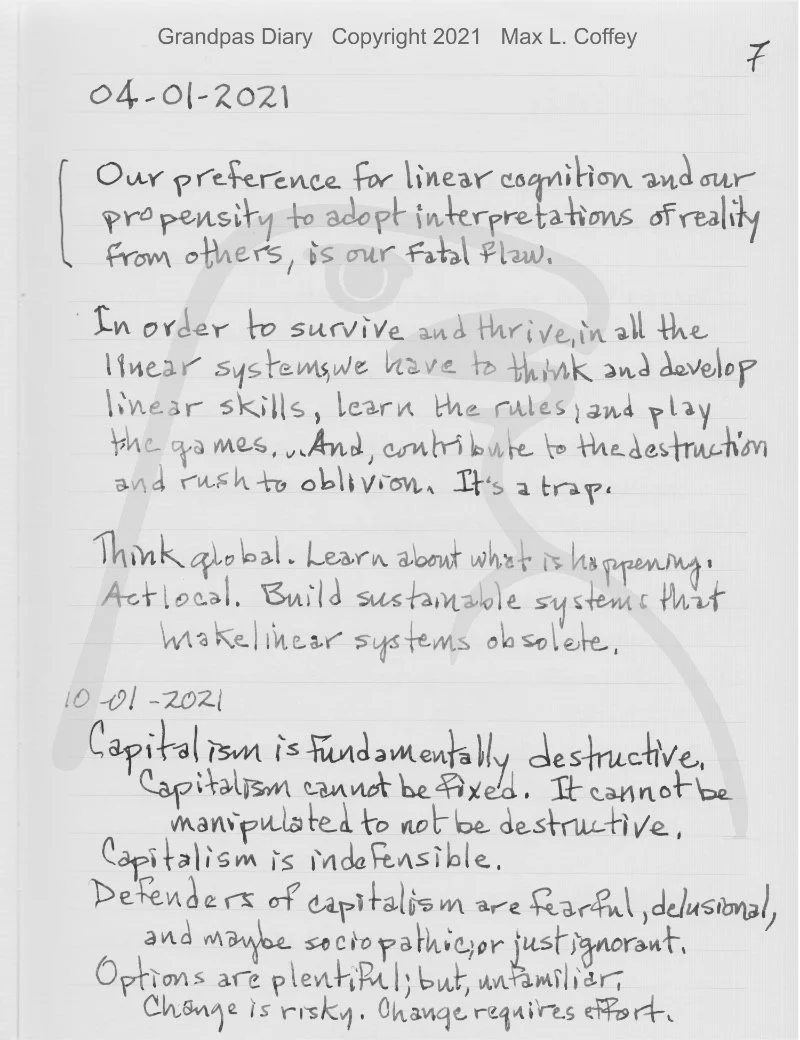 Grandpas Diary Copyright 2021 Max L. Coffey
7
04-01-2021
Our preference for linear cognition and our
propensity to adopt interpretations of reality
from others, is our fatal flaw.
In order to survive and thrive, in all the
linear systems, we have to think and develop
linear skills, learn the rules, and play
the games... And, contribute to the destruction
and rush to oblivion. It's a trap.
Think global. Learn about what is happening.
Act local. Build sustainable systems that
make linear systems obsolete.
10-01-2021
Capitalism is fundamentally destructive.
Capitalism cannot be fixed. It cannot be
manipulated to not be destructive.
Capitalism is indefensible.
Defenders of capitalism are fearful, delusional,
and maybe sociopathic; or just ignorant.
Options are plentiful; but, unfamiliar.
Change is risky. Change requires effort.